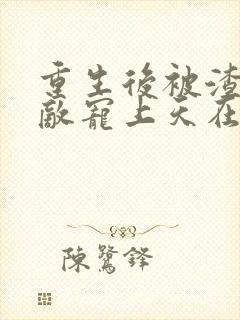 重生後被渣
敵寵上天在
陳鷺鋒